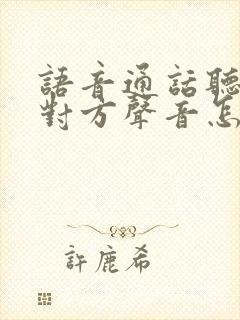 語音通話聽
對方聲音怎
許鹿希